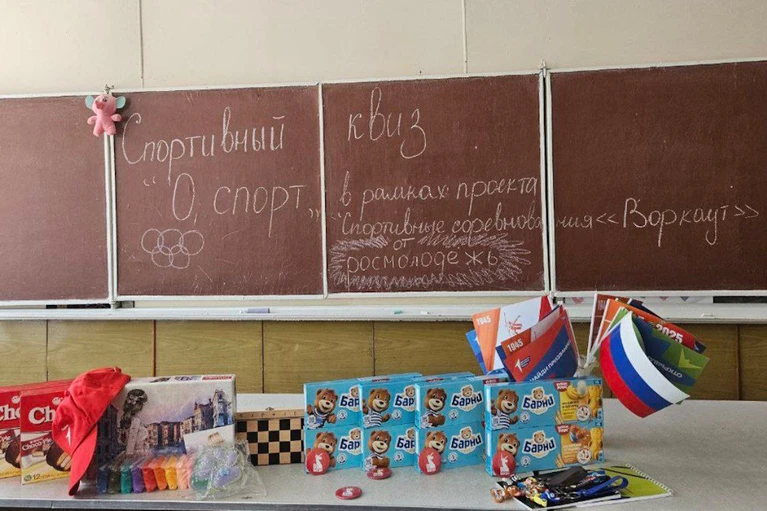 Спортивный квиз
"О, спорт„
в рамках проекта
"Спортивные соревнования «Воркаут»
от
росмолодежь
1945
1945
2025
Барни
Барни
Барни
Барни
Барни
Барни
Барни
Барни
Cho
Choco Pie
12